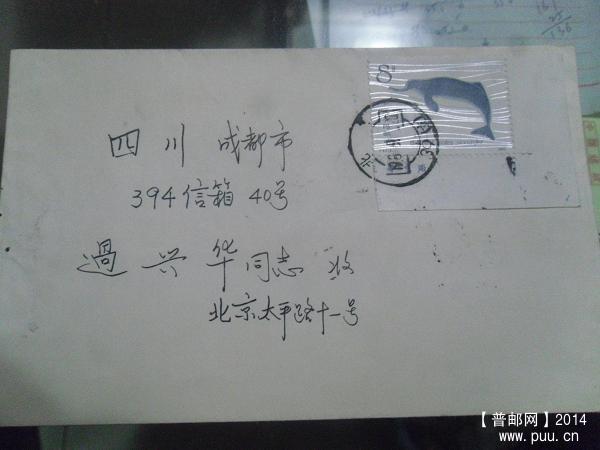 8分
四川 成都市
394信箱 40号
過兴华同志 收
北京太平路十一号
【普邮网】2014
www.puu.cn